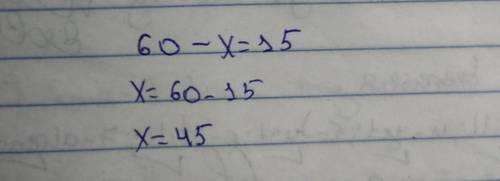 60 - x = 15
x = 60 - 15
x = 45